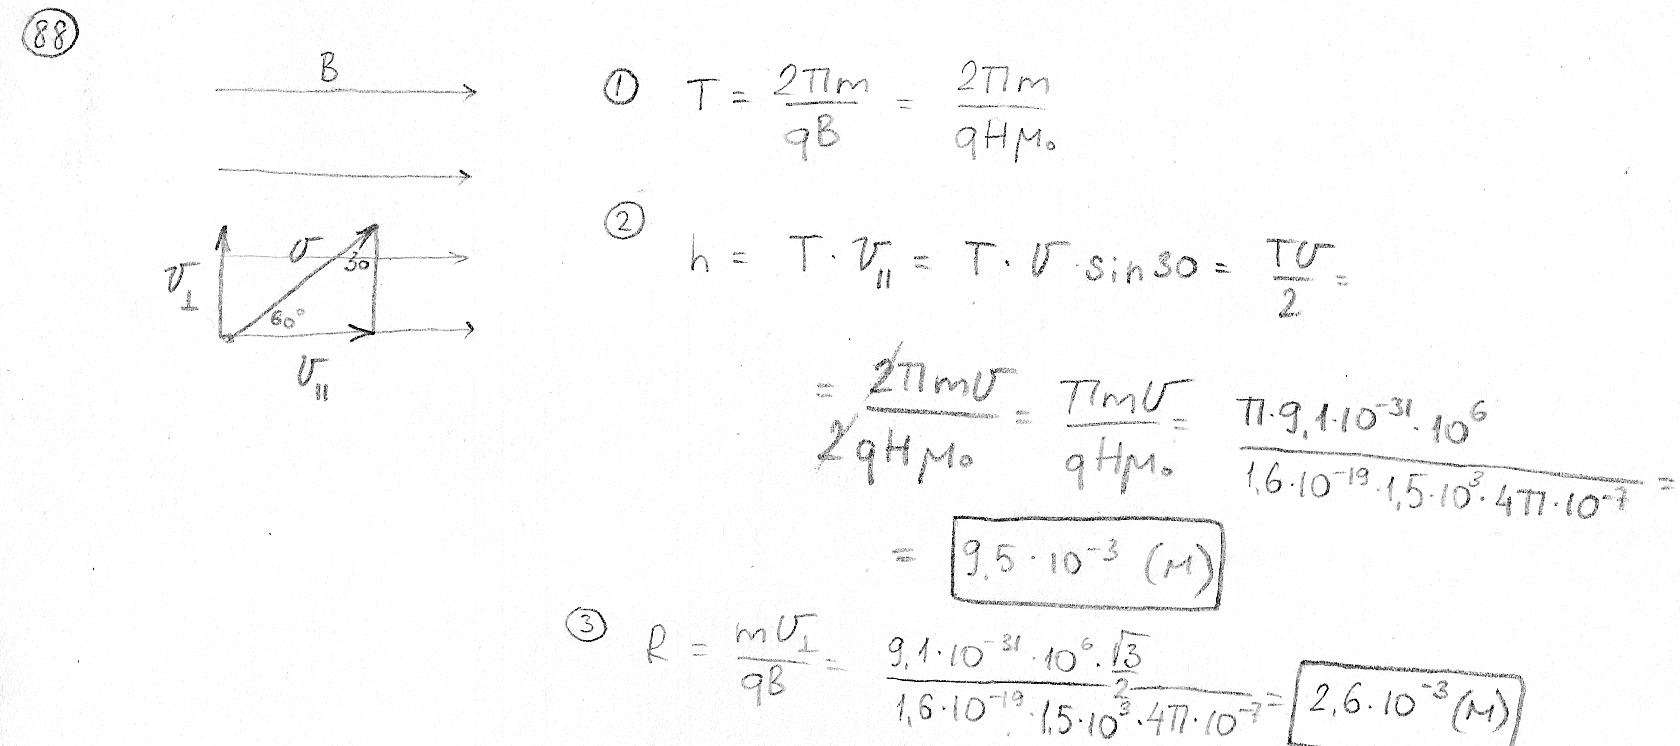 88
B
① T = 2πm / qB = 2πm / qHμ₀
υ⊥ υ 30 60° υ||
② h = T · υ|| = T · υ · sin30 = Tυ / 2 =
= 2πmυ / 2qHμ₀ = πmυ / qHμ₀ = π·9,1·10⁻³¹·10⁶ / 1,6·10⁻¹⁹·1,5·10³·4π·10⁻⁷ =
= 9,5·10⁻³ (м)
③ R = mυ⊥ / qB = 9,1·10⁻³¹·10⁶·√3/2 / 1,6·10⁻¹⁹·1,5·10³·4π·10⁻⁷ = 2,6·10⁻³ (м)